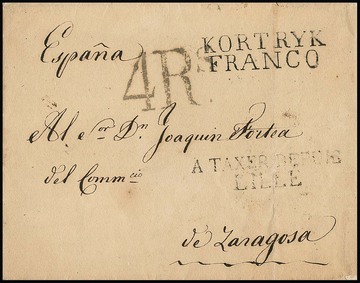 España
4Rs
KORTRYK
FRANCO
Al Sor. Dn Joaquin Fortea
del Commcio
A TAXER DEPUIS
LILLE
de Zaragosa